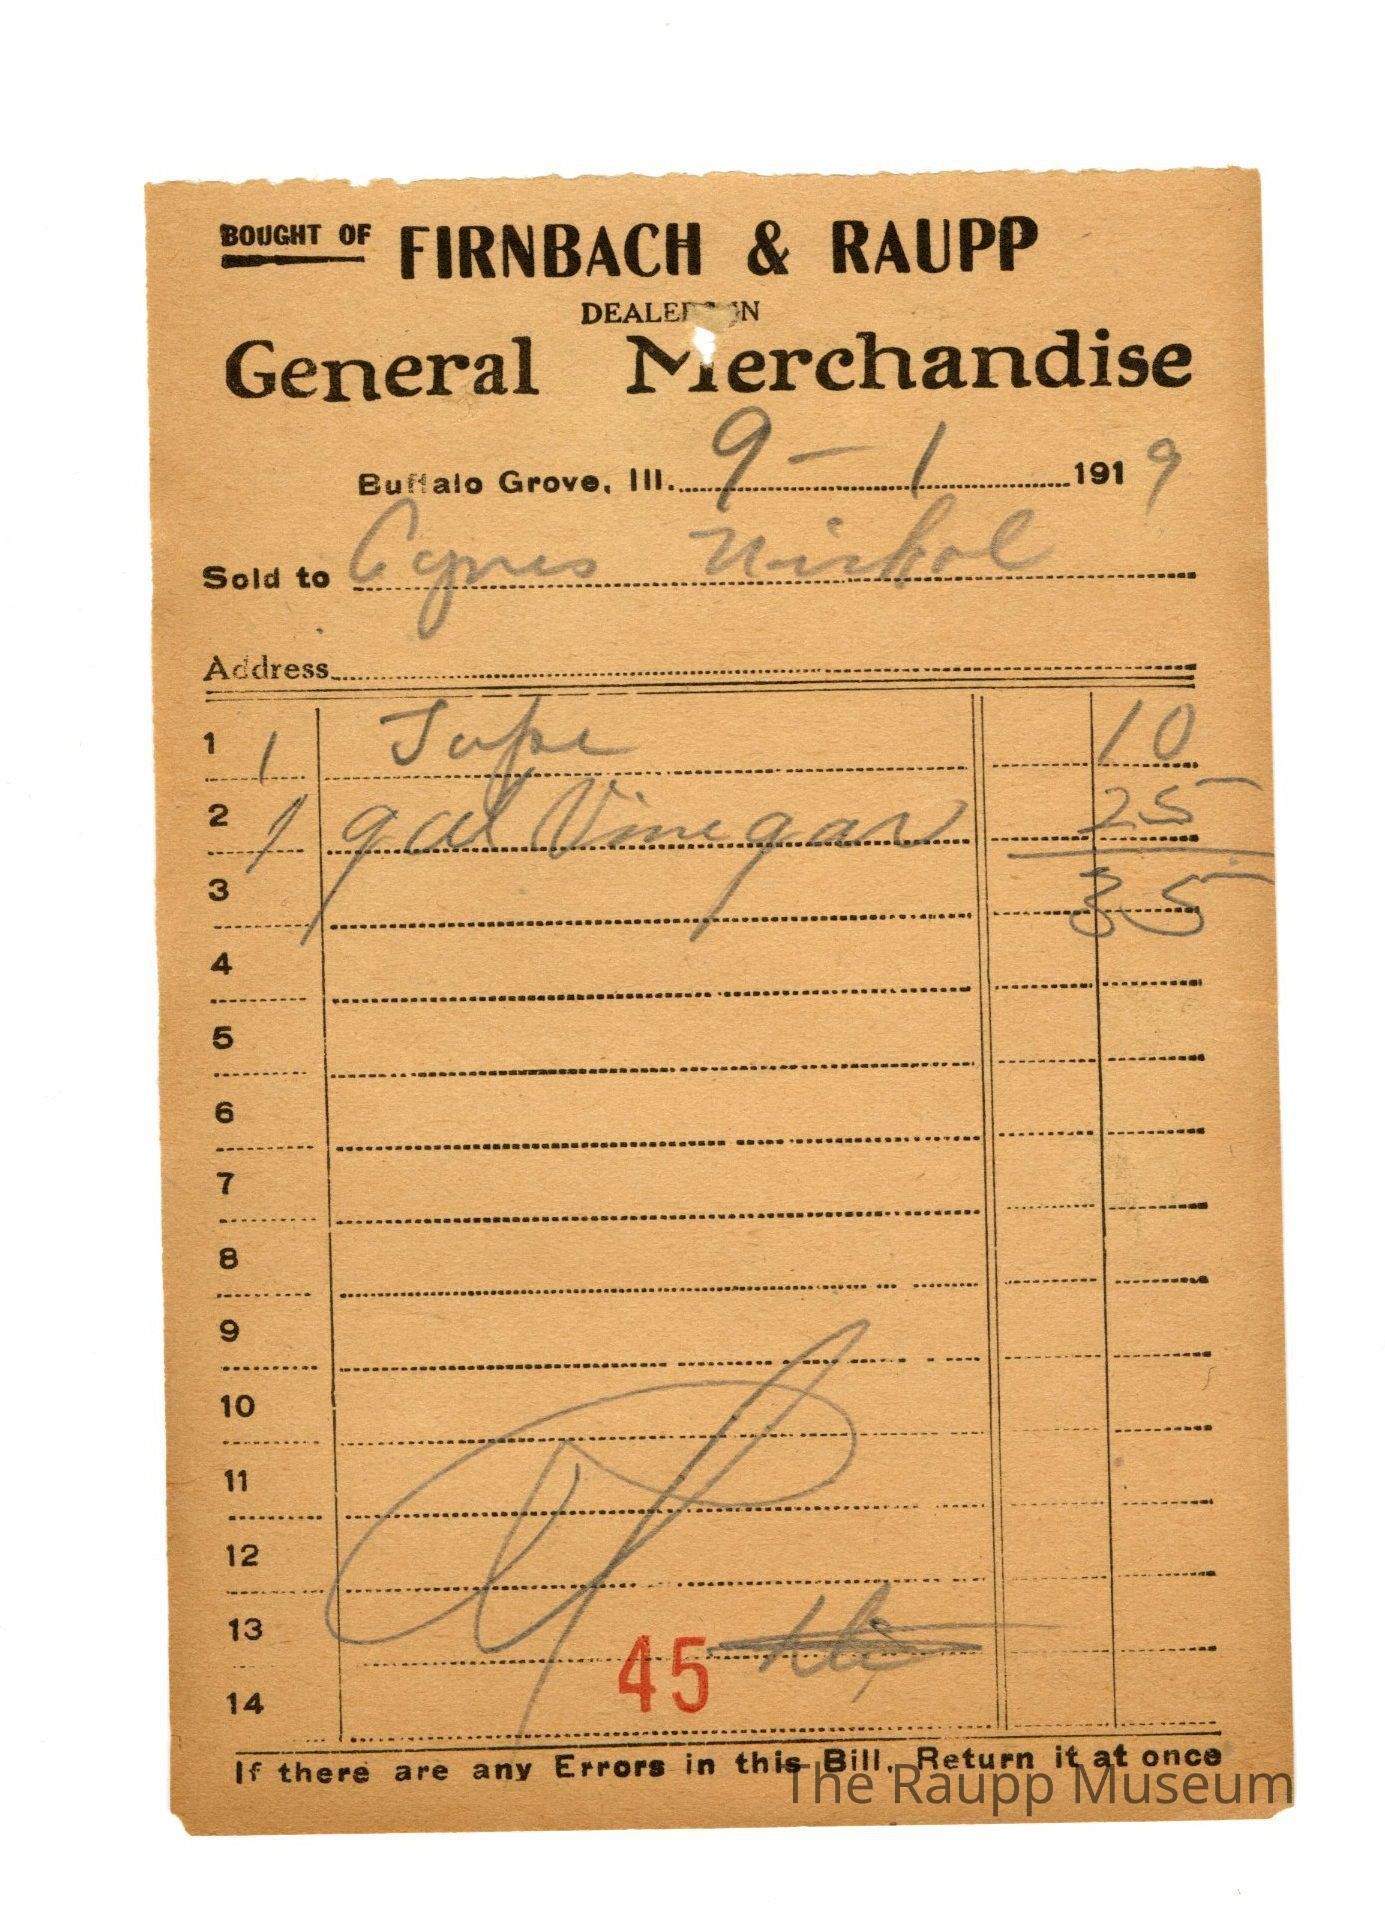 BOUGHT OF FIRNBACH & RAUPP
DEALERS IN
General Merchandise
Buffalo Grove, Ill. 9 - 1 1919
Sold to Agnes Nickol
Address
1 1 10
2 1 gal Vinegar 25
3 35
4
5
6
7
8
9
10
11
12
13
45
14
If there are any Errors in this Bill, Return it at once
The Raupp Museum